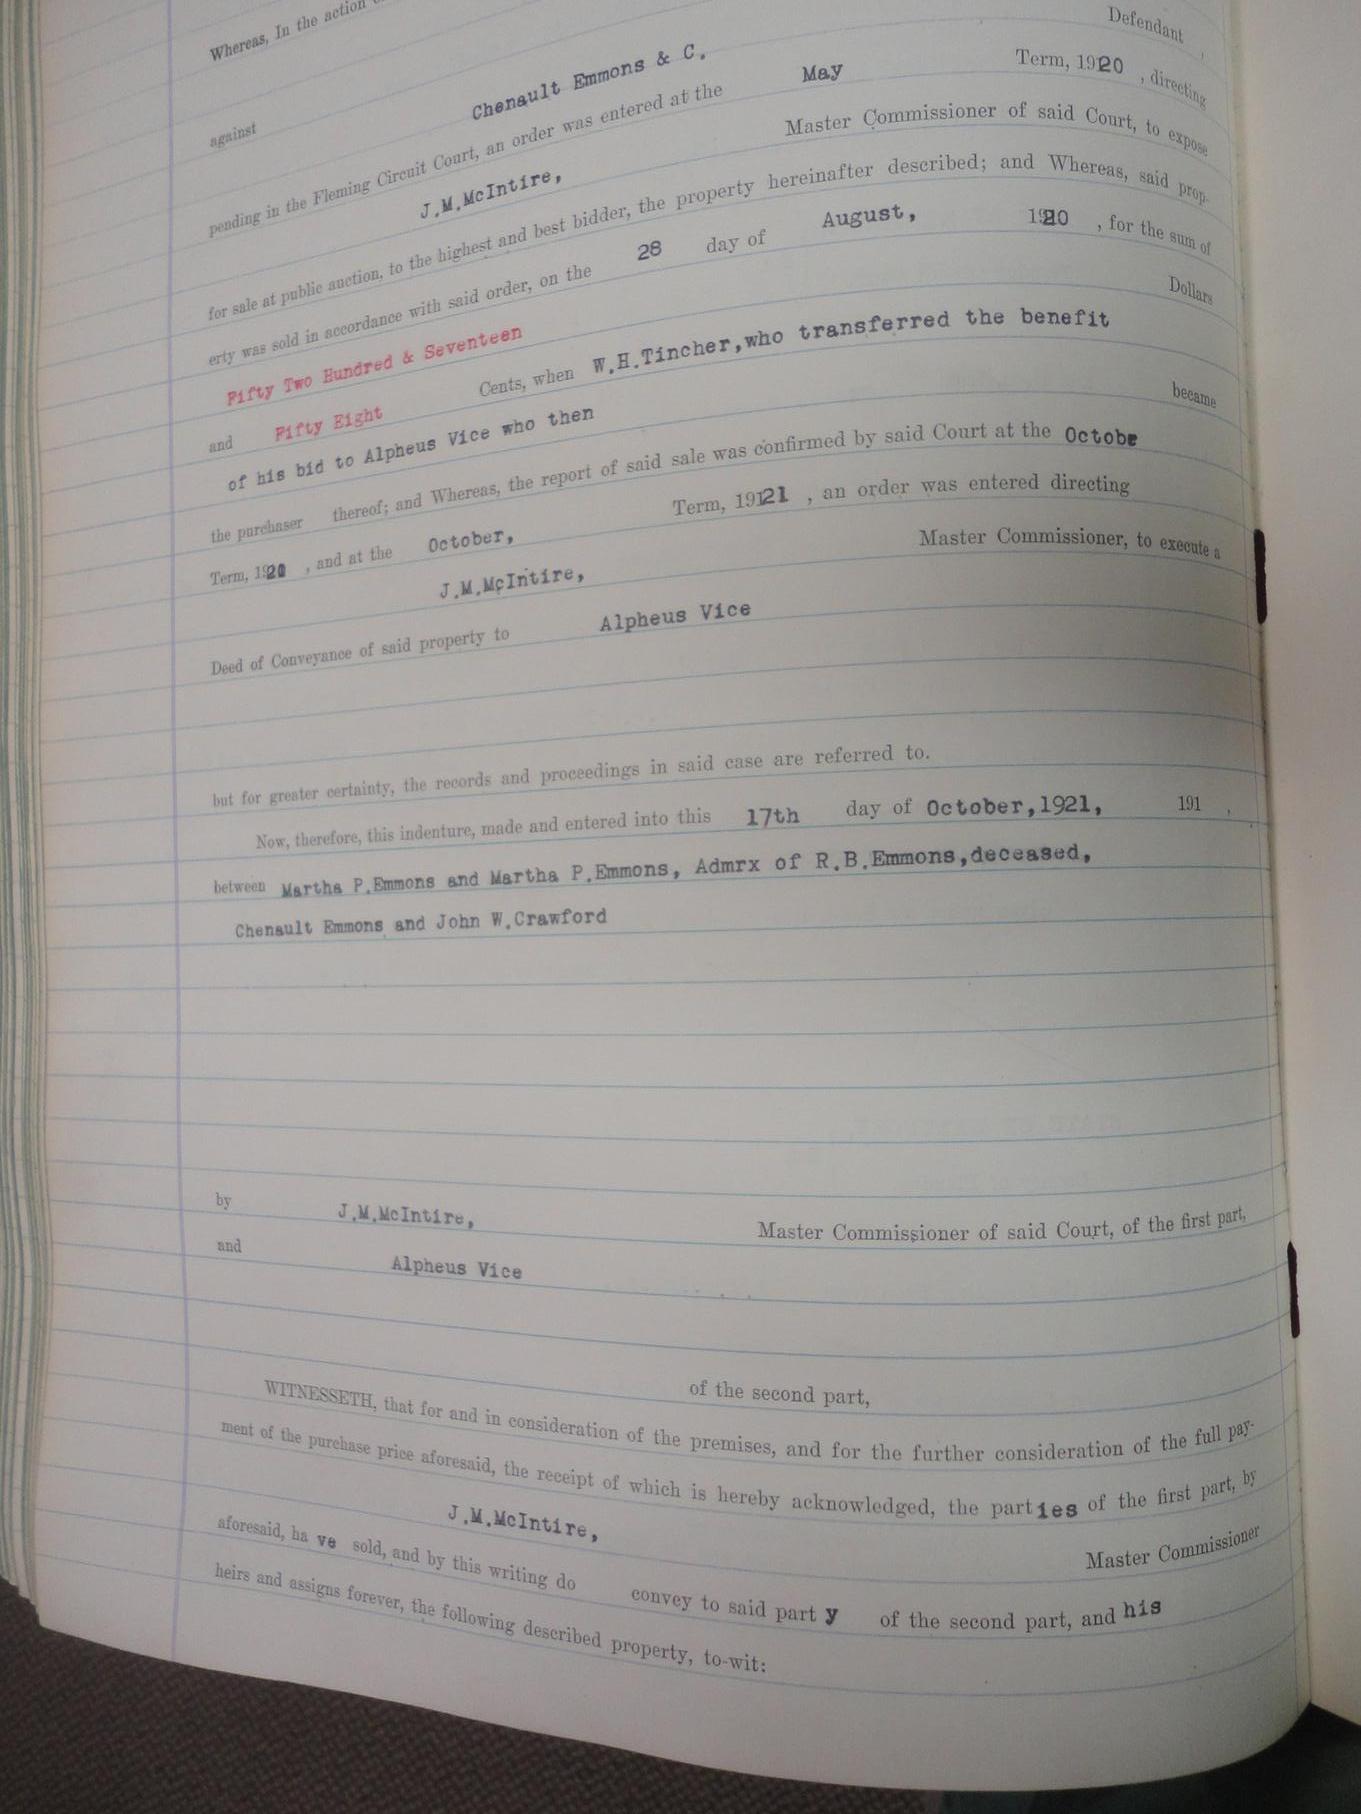 Whereas, In the action
Defendant ,
against Chenault Emmons & C.
pending in the Fleming Circuit Court, an order was entered at the May Term, 1920 , directing
J.M.McIntire, Master Commissioner of said Court, to expose
for sale at public auction, to the highest and best bidder, the property hereinafter described; and Whereas, said prop-
erty was sold in accordance with said order, on the 28 day of August, 1920 , for the sum of
Fifty Two Hundred & Seventeen Dollars
and Fifty Eight Cents, when W.H.Tincher,who transferred the benefit
of his bid to Alpheus Vice who then became
the purchaser thereof; and Whereas, the report of said sale was confirmed by said Court at the Octobe
Term, 1920 , and at the October, Term, 1921 , an order was entered directing
J.M.McIntire, Master Commissioner, to execute a
Deed of Conveyance of said property to Alpheus Vice
but for greater certainty, the records and proceedings in said case are referred to.
Now, therefore, this indenture, made and entered into this 17th day of October,1921, 191 ,
between Martha P.Emmons and Martha P.Emmons, Admrx of R.B.Emmons,deceased,
Chenault Emmons and John W.Crawford
by J.M.McIntire, Master Commissioner of said Court, of the first part,
and Alpheus Vice
of the second part,
WITNESSETH, that for and in consideration of the premises, and for the further consideration of the full pay-
ment of the purchase price aforesaid, the receipt of which is hereby acknowledged, the parties of the first part, by
J.M.McIntire, Master Commissioner
aforesaid, ha ve sold, and by this writing do convey to said part y of the second part, and his
heirs and assigns forever, the following described property, to-wit: